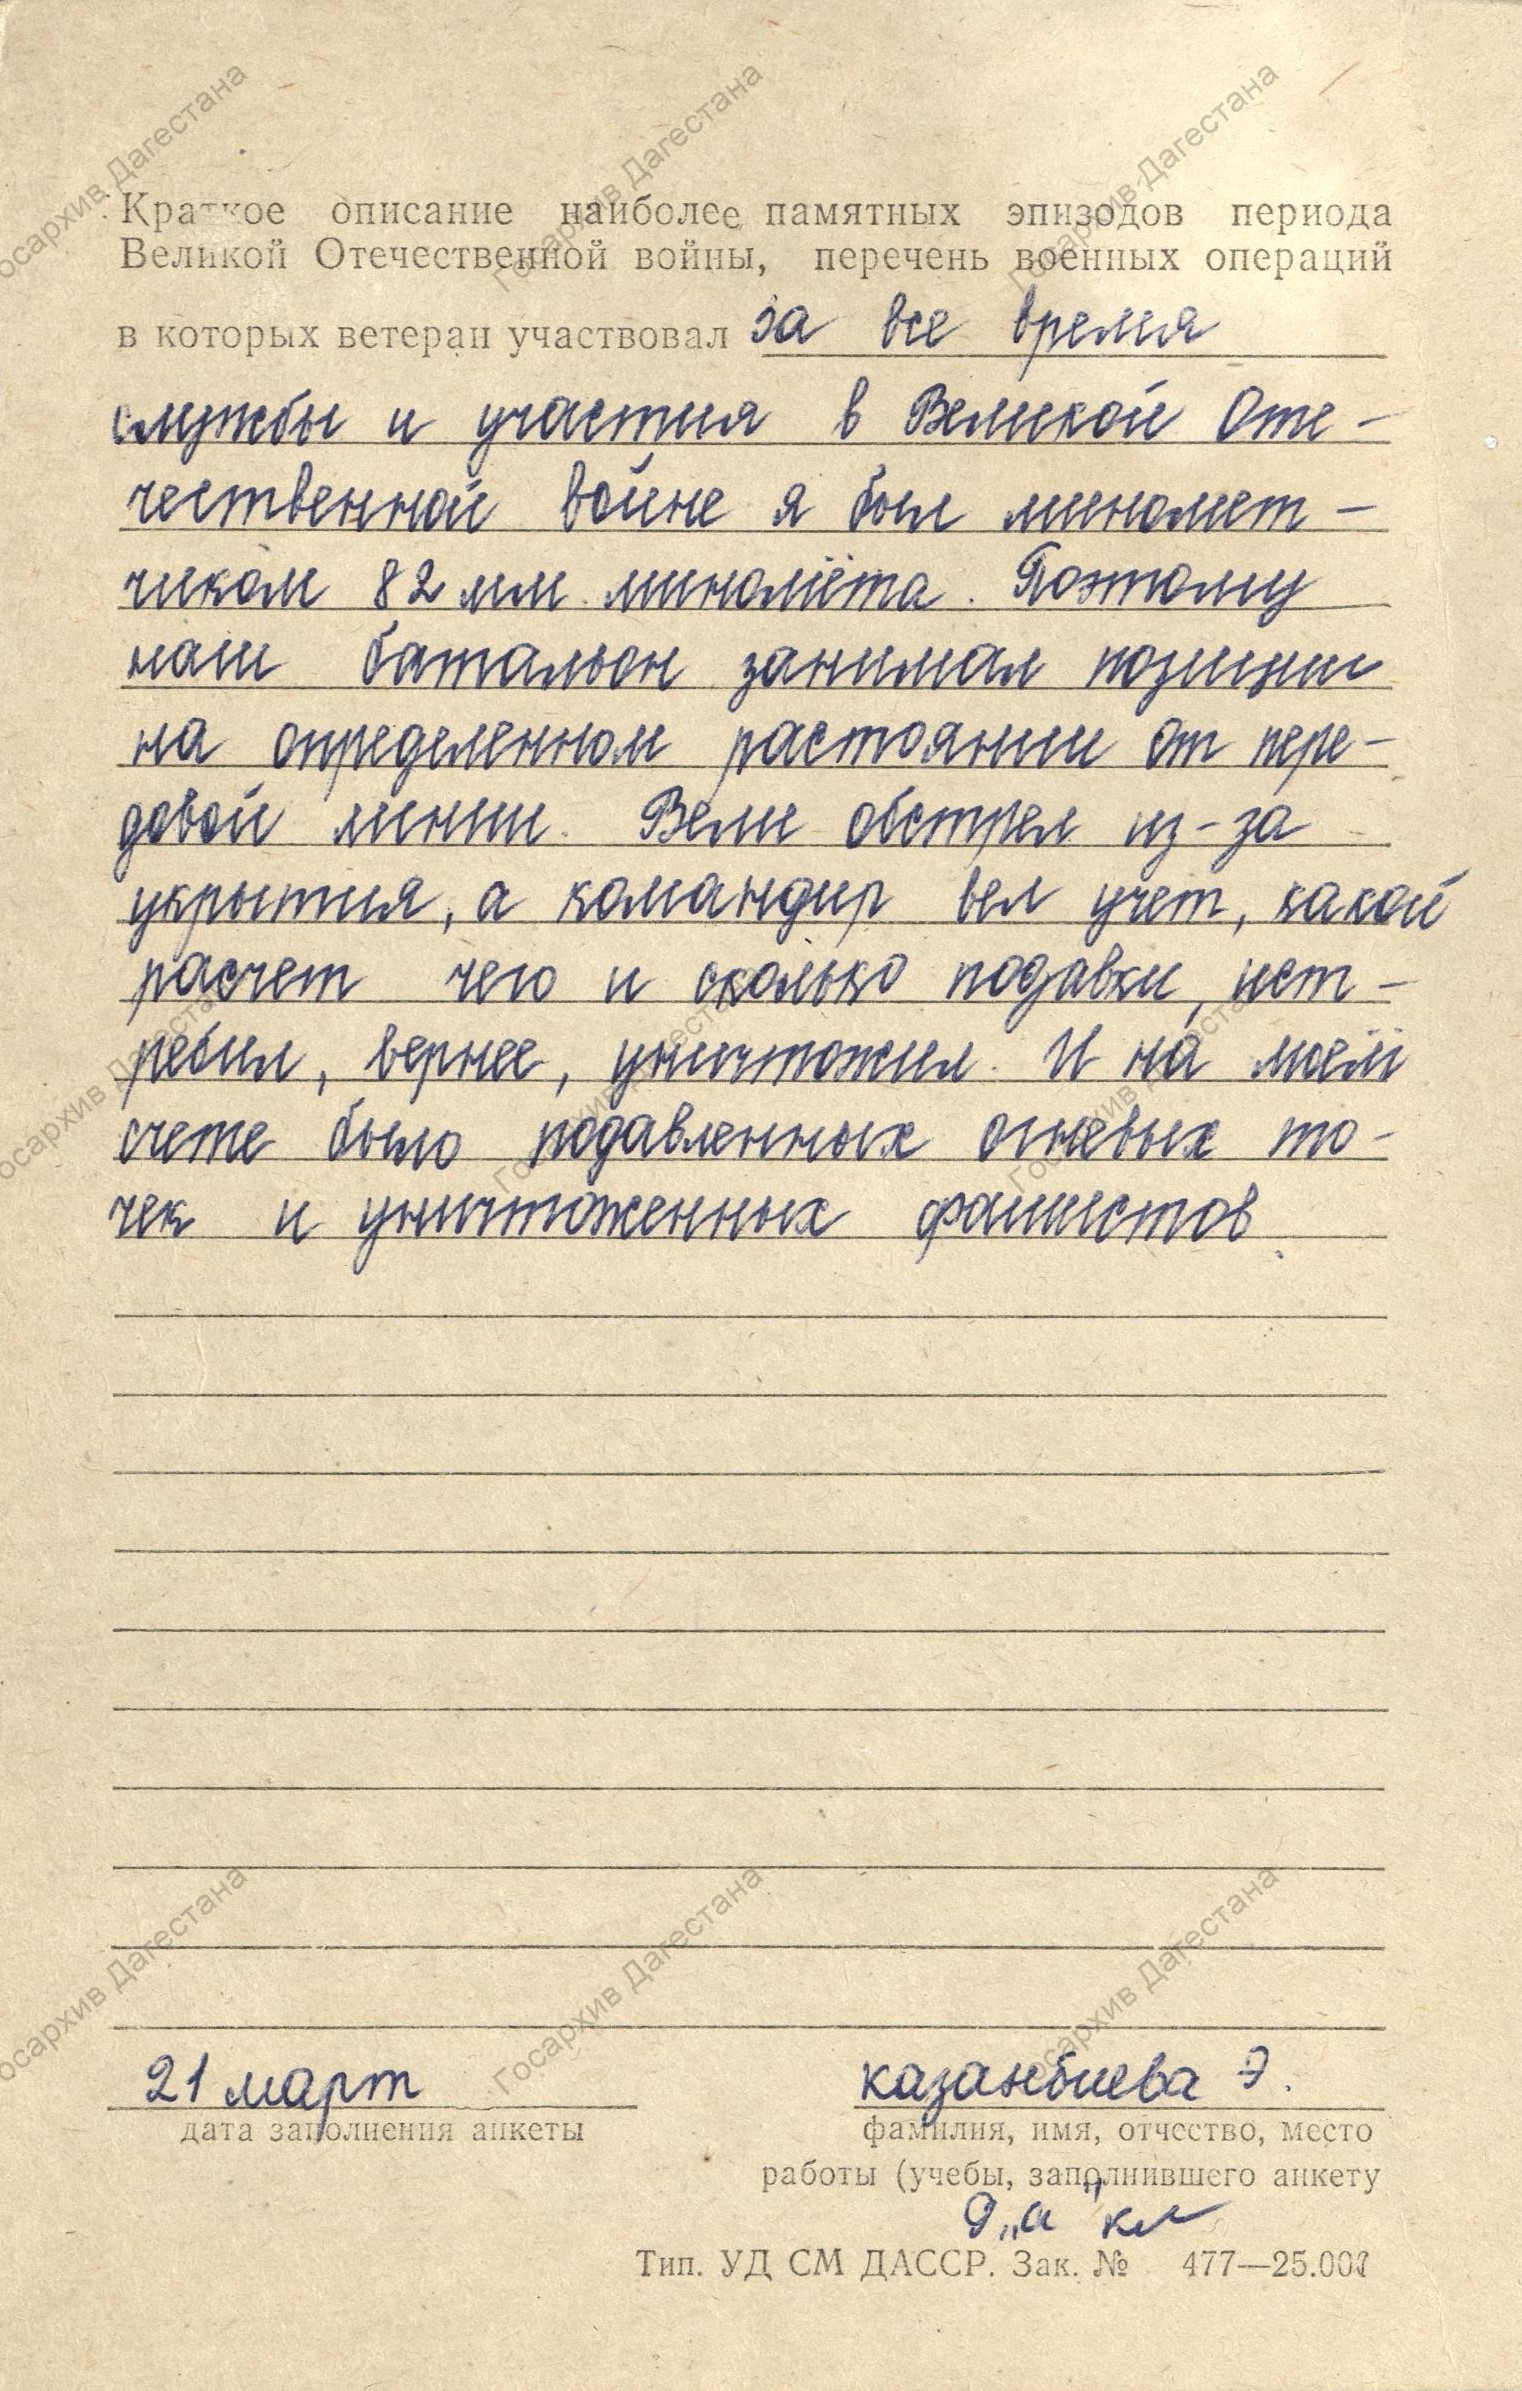 Краткое описание наиболее памятных эпизодов периода
Великой Отечественной войны, перечень военных операций
в которых ветеран участвовал за все время
службы и участия в Великой Оте-
чественной войне я был миномет-
чиком 82 мм миномёта. Поэтому
наш батальон занимал позиции
на определенном растоянии от пере-
довой линии. Вели обстрел из-за
укрытия, а командир вел учет, какой
расчет чего и сколько подавки, ист-
ребил, вернее, уничтожил. И на моем
счете было подавленных огневых то-
чек и уничтоженных фашистов.
21 март
казанбиева Э.
дата заполнения анкеты
фамилия, имя, отчество, место
работы (учебы, заполнившего анкету
9 „а" кл
Тип. УД СМ ДАССР. Зак. № 477—25.000
Госархив Дагестана